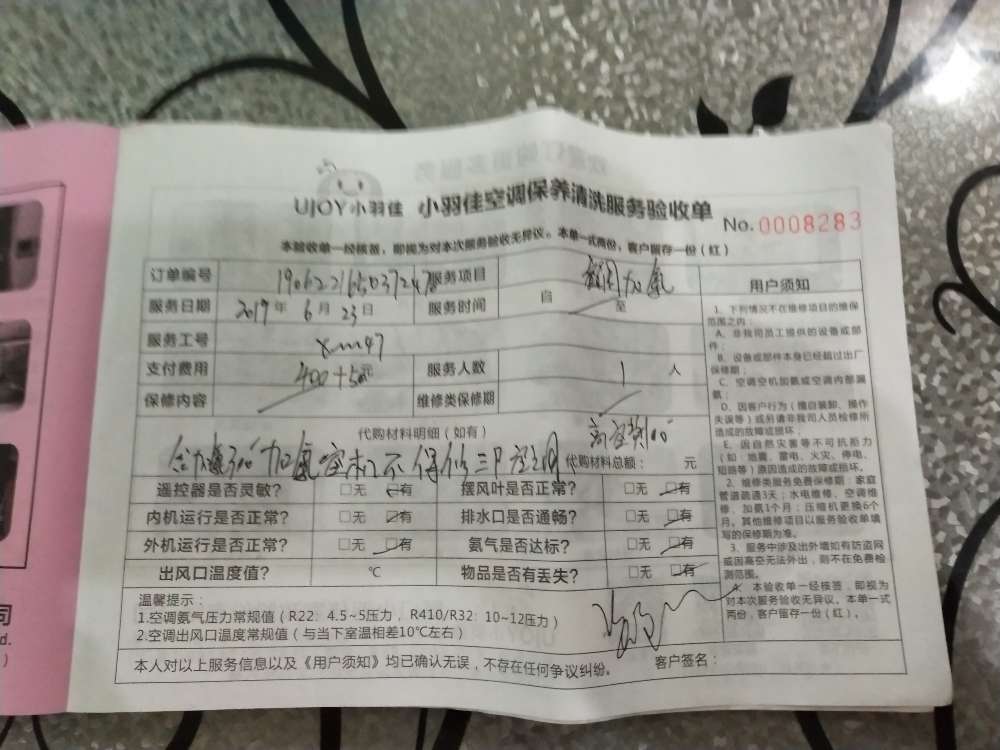 UJOY小羽佳 小羽佳空调保养清洗服务验收单
No.0008283
本验收单一经核签，即视为对本次服务验收无异议。本单一式两份，客户留存一份（红）
订单编号 服务项目
服务日期 2019年6月23日 服务时间 自 至
服务工号 xm47
支付费用 400+5元 服务人数 1 人
保修内容 维修类保修期
代购材料明细（如有）
代购材料总额： 元
遥控器是否灵敏？ □无 □有 摆风叶是否正常？ □无 □有
内机运行是否正常？ □无 □有 排水口是否通畅？ □无 □有
外机运行是否正常？ □无 □有 氨气是否达标？ □无 □有
出风口温度值？ ℃ 物品是否有丢失？ □无 □有
温馨提示：
1.空调氨气压力常规值（R22：4.5~5压力，R410/R32：10~12压力）
2.空调出风口温度常规值（与当下室温相差10℃左右）
本人对以上服务信息以及《用户须知》均已确认无误，不存在任何争议纠纷。 客户签名：
用户须知
1、下列情况不在维修项目的维保
范围之内：
A、非我司员工提供的设备或部
件；
B、设备或部件本身已经超过出厂
保修期；
C、空调空机加氨或空调内部漏
氨；
D、因客户行为（擅自装卸、操作
失误等）或另请非我司人员检修所
造成的故障或损坏；
E、因自然灾害等不可抗拒力
（如：地震、雷电、火灾、停电、
短路等）原因造成的故障或损坏。
2、维修类服务免费保修期：家庭
管道疏通3天；水电维修、空调维
修、加氨1个月；压缩机更换6个
月。其他维修项目以服务验收单填
写的保修期为准。
3、服务中涉及出外墙如有防盗网
或因高空无法外出，则不在免费检
测范围。
4、本验收单一经核签，即视为
对本次服务验收无异议。本单一式
两份，客户留存一份（红）。
司
d.
)